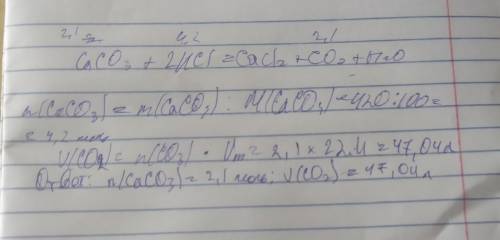 2,1 4,2 2,1
CaCO3 + 2HCl = CaCl2 + CO2 + H2O
n(CaCO3) = m(CaCO3) : M(CaCO3) = 420:100=
= 4,2 моль
V(CO2) = n(CO2) · Vm = 2,1 x 22,4 = 47,04л
Ответ: n(CaCO3) = 2,1 моль; V(CO2) = 47,04л